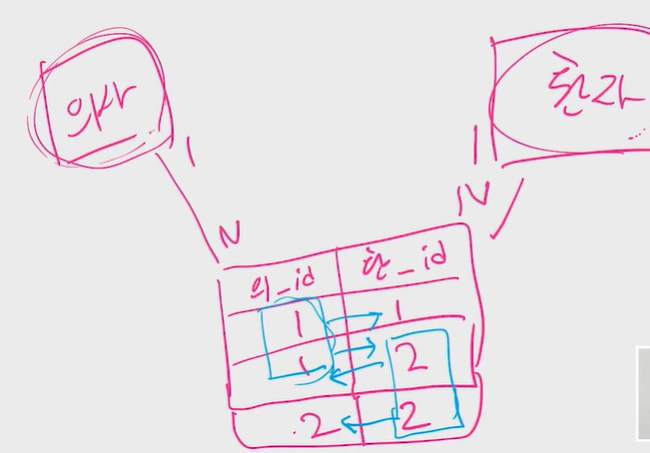 의사
환자
1
1
N
N
의_id 환_id
1 1
1 2
2 2